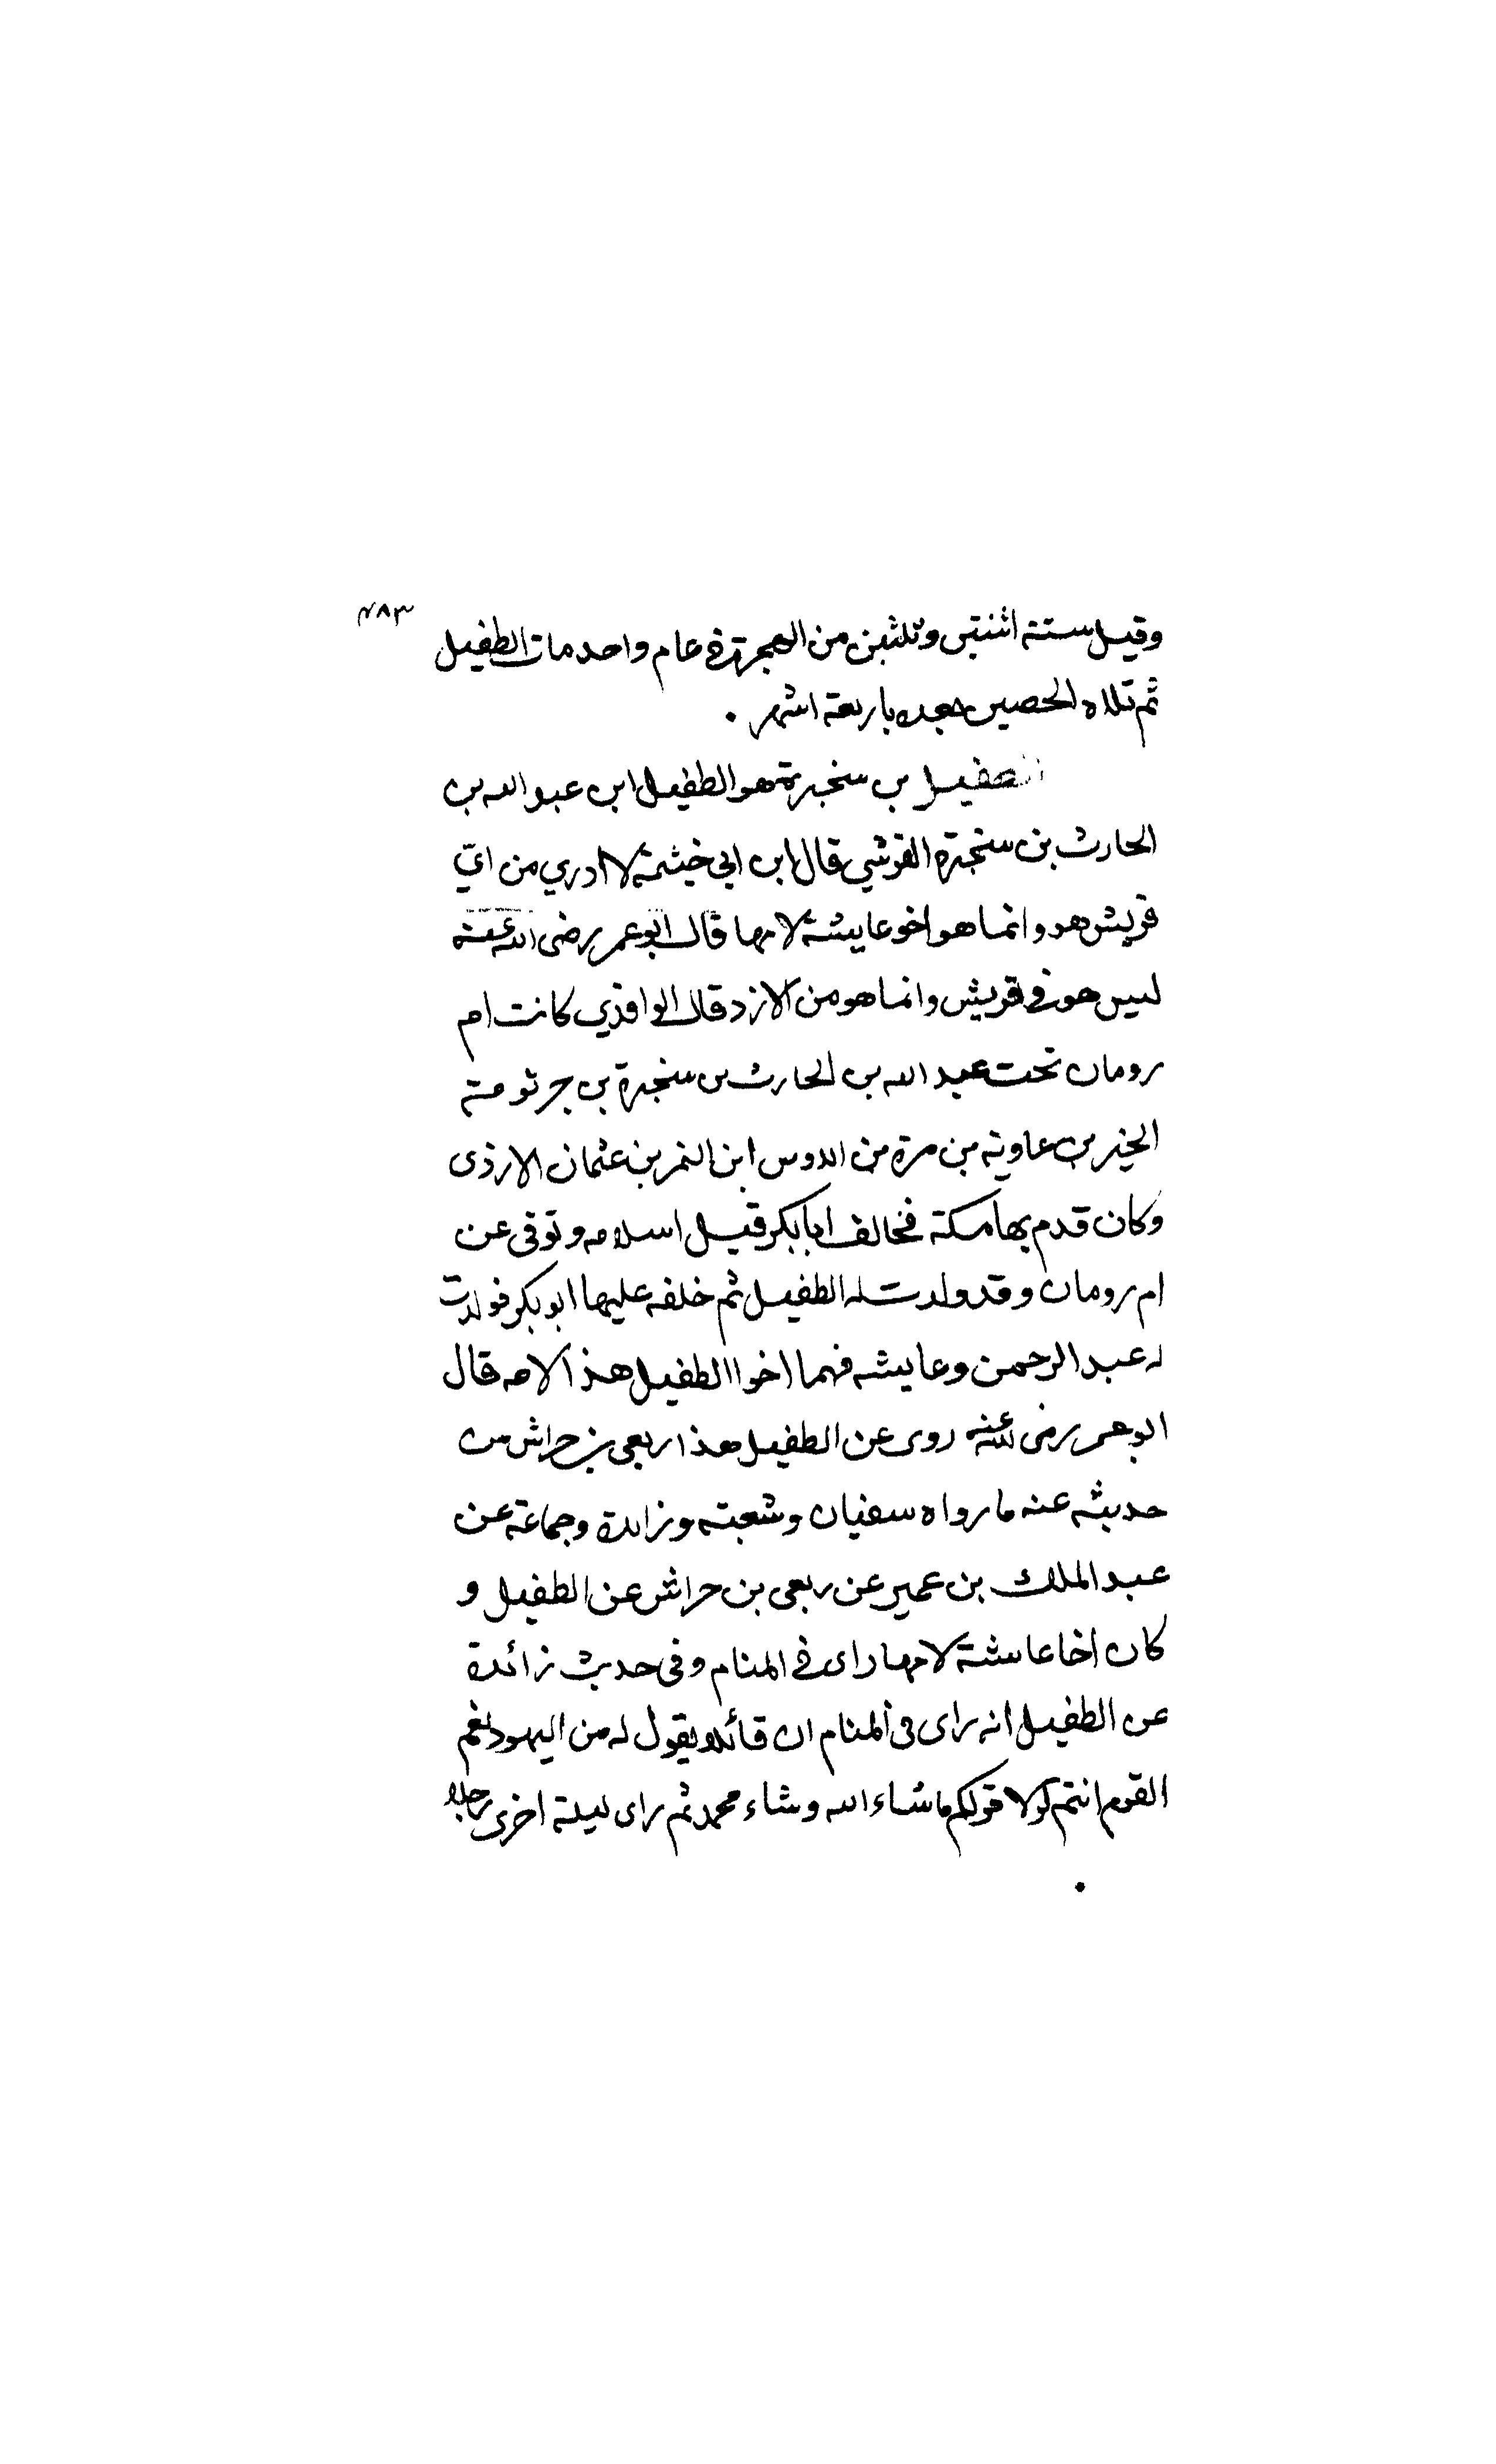 ٤٨٣
وقيل سنة اثنتين وثلثين من الهجرة في عام واحد مات الطفيل
ثم تلاه الحصين بعده باربعة اشهر .
الطفيل بن سنجرة هو الطفيل ابن عبد الله بن
الحارث بن سنجرة القرشي قال ابن ابي خيثمة لا ادري من ايّ
قريش هو وانما هو اخو عايشة لامها قال ابو عمر رضى الله عنه
ليس هو في قريش وانما هو من الازد قال الواقدي كانت ام
رومان تحت عبد الله بن الحارث بن سنجرة بن جرثومة
الخير بن عاوية بن مرة من الدوس ابن النمر بن عثمان الازدى
وكان قدم بها مكة فحالف ابا بكر قبل اسلامه وتوفى عن
ام رومان وقد ولدت له الطفيل ثم خلفه عليها ابو بكر فولدت
له عبد الرحمن وعايشه فهما اخوا الطفيل هذا لامه قال
ابو عمر رضى الله عنه روى عن الطفيل هذا ربعى بن حراش من
حديثه عنه ما رواه سفيان وشعبة وزايدة وجماعة عن
عبد الملك بن عمير عن ربعى بن حراش عن الطفيل و
كان اخا عائشة لامها راى في المنام وفى حديث زائدة
عن الطفيل انه راى في المنام ان قائلا يقول له من اليهود نعم
القوم انتم لولا قولكم ما شاء الله وشاء محمد ثم راى ليلة اخرى رجلا